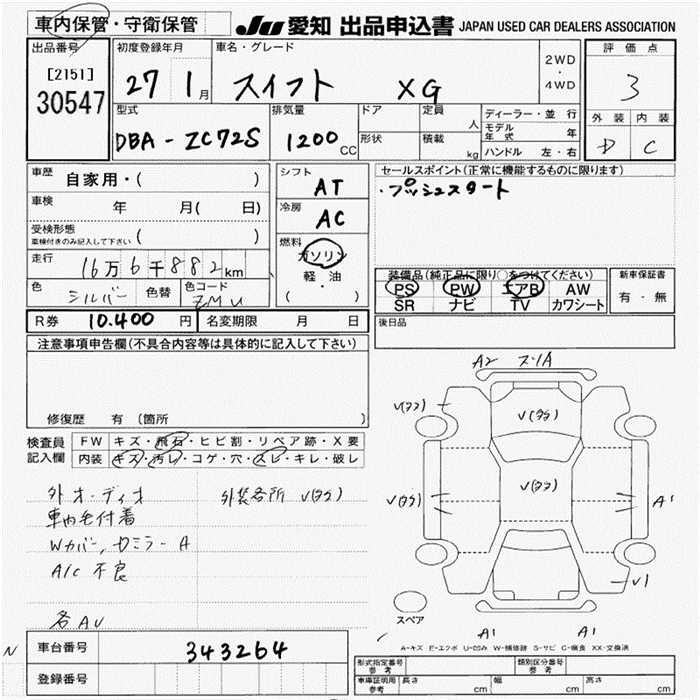 車内保管・守衛保管
JU 愛知 出品申込書 JAPAN USED CAR DEALERS ASSOCIATION
出品番号
[2151]
30547
初度登録年月
27 1月
車名・グレード
スイフト XG
2WD
・
4WD
評価点
3
外装 内装
D C
型式
DBA - ZC72S
排気量
1200 CC
ドア
形状
定員
人
積載
kg
ディーラー・並行
モデル年式 年
ハンドル 左・右
車歴 自家用・( )
車検 年 月( 日)
受検形態
車検付きのみ記入して下さい ( )
走行 16万6千882km
色 シルバー 色替 色コード ZMU
シフト AT
冷房 AC
燃料 ガソリン
軽・油
( )
セールスポイント(正常に機能するものに限ります)
・プッシュスタート
装備品(純正品に限り○をつけてください)
PS PW エアB AW
SR ナビ TV カワシート
新車保証書
有・無
R券 10.400 円 名変期限 月 日
後日品
注意事項申告欄(不具合内容等は具体的に記入して下さい)
修復歴 有 (箇所 )
検査員
記入欄
FW キズ・飛石・ヒビ割・リペア跡・X要
内装 キズ・汚レ・コゲ・穴・スレ・キレ・破レ
外オーディオ
車内毛付着
Wカバー, ドミラーA
A/C不良
各AU
外装各所
A2 ズリA
A1
V1
A1 A1
スペア
A-キズ E-エクボ U-凹み W-補修跡 S-サビ C-腐食 XX-交換済
N
車台番号 343264
登録番号
形式指定番号
参考
類別区分番号
参考
車庫証明用
参考
長さ cm 幅 cm 高さ cm